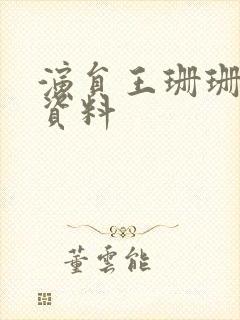 演員王珊珊
資料
董雲能